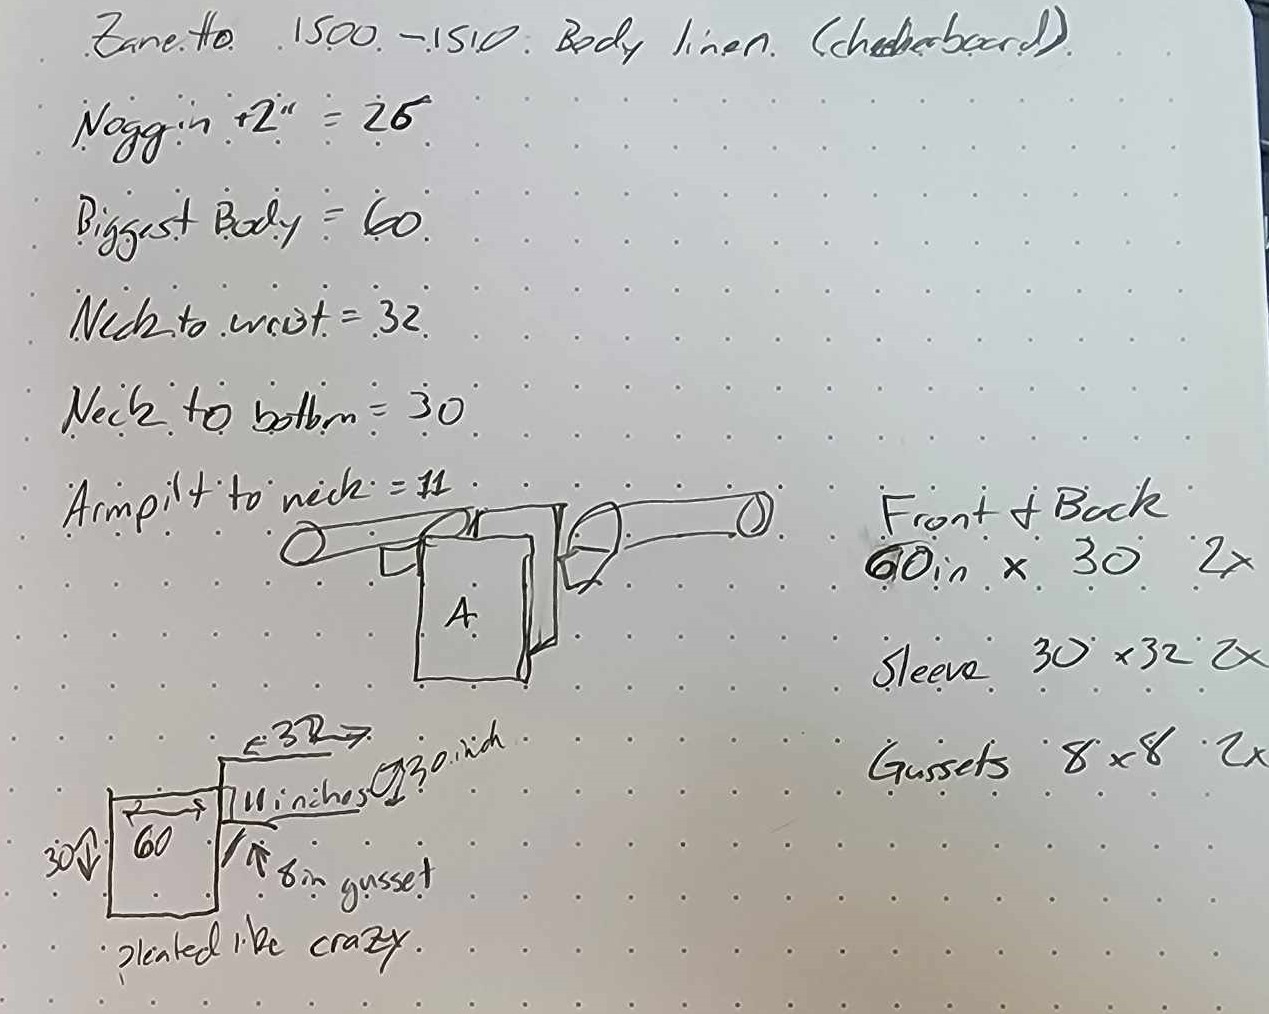 Zanetto 1500-1510 Body linen (checkerboard)
Noggin +2" = 26
Biggest Body = 60
Neck to wrist = 32
Neck to bottom = 30
Armpit to neck = 11
A
Front & Back
60in x 30 2x
Sleeve 30 x 32 2x
Gussets 8 x 8 2x
32
11 inches 30 inch
60
30
8in gusset
pleated like crazy